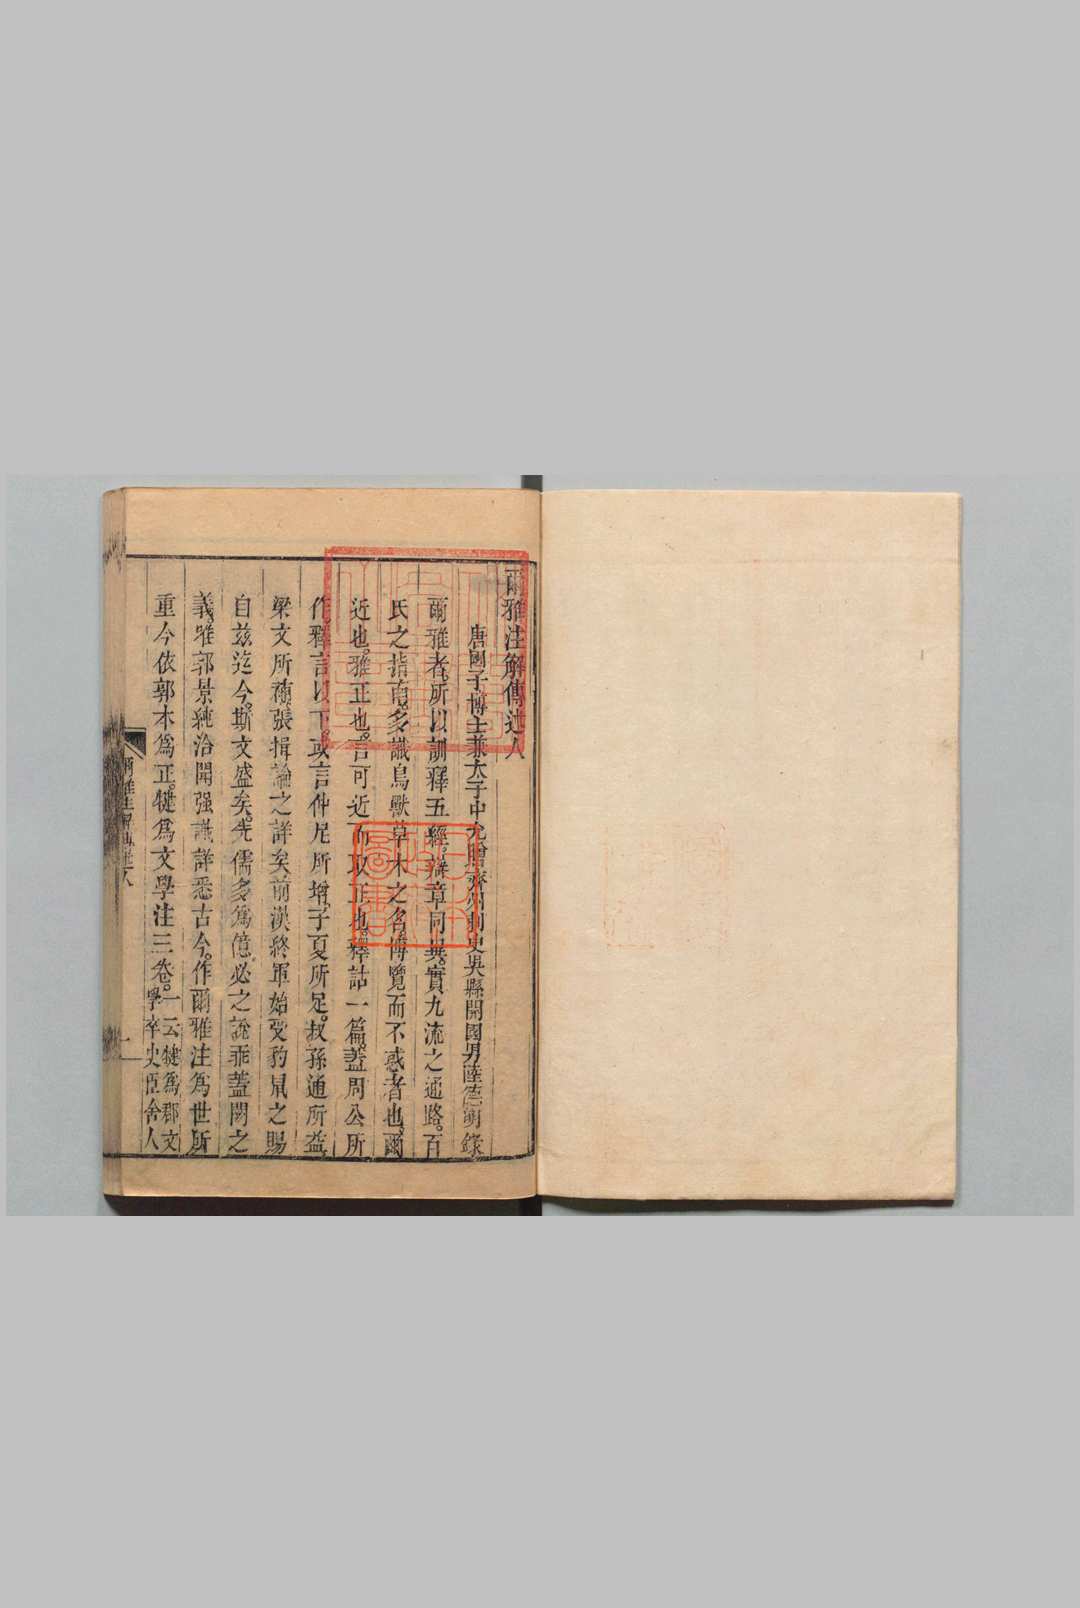 爾雅注解傳述人
唐國子博士兼太子中允贈齊州刺史吳縣開國男陸德明錄
爾雅者所以訓釋五經辯章同異實九流之通路百
氏之指南多識鳥獸草木之名博覽而不惑者也爾
近也雅正也言可近而取正也釋詁一篇蓋周公所
作釋言以下或言仲尼所增子夏所足叔孫通所益
梁文所補張揖論之詳矣前漢終軍始受豹鼠之賜
自茲迄今斯文盛矣先儒多爲億必之說乖蓋闕之
義唯郭景純洽聞强識詳悉古今作爾雅注爲世所
重今依郭本爲正犍爲文學注三卷一云犍爲郡文
學卒史臣舍人
爾雅注解傳述人
一